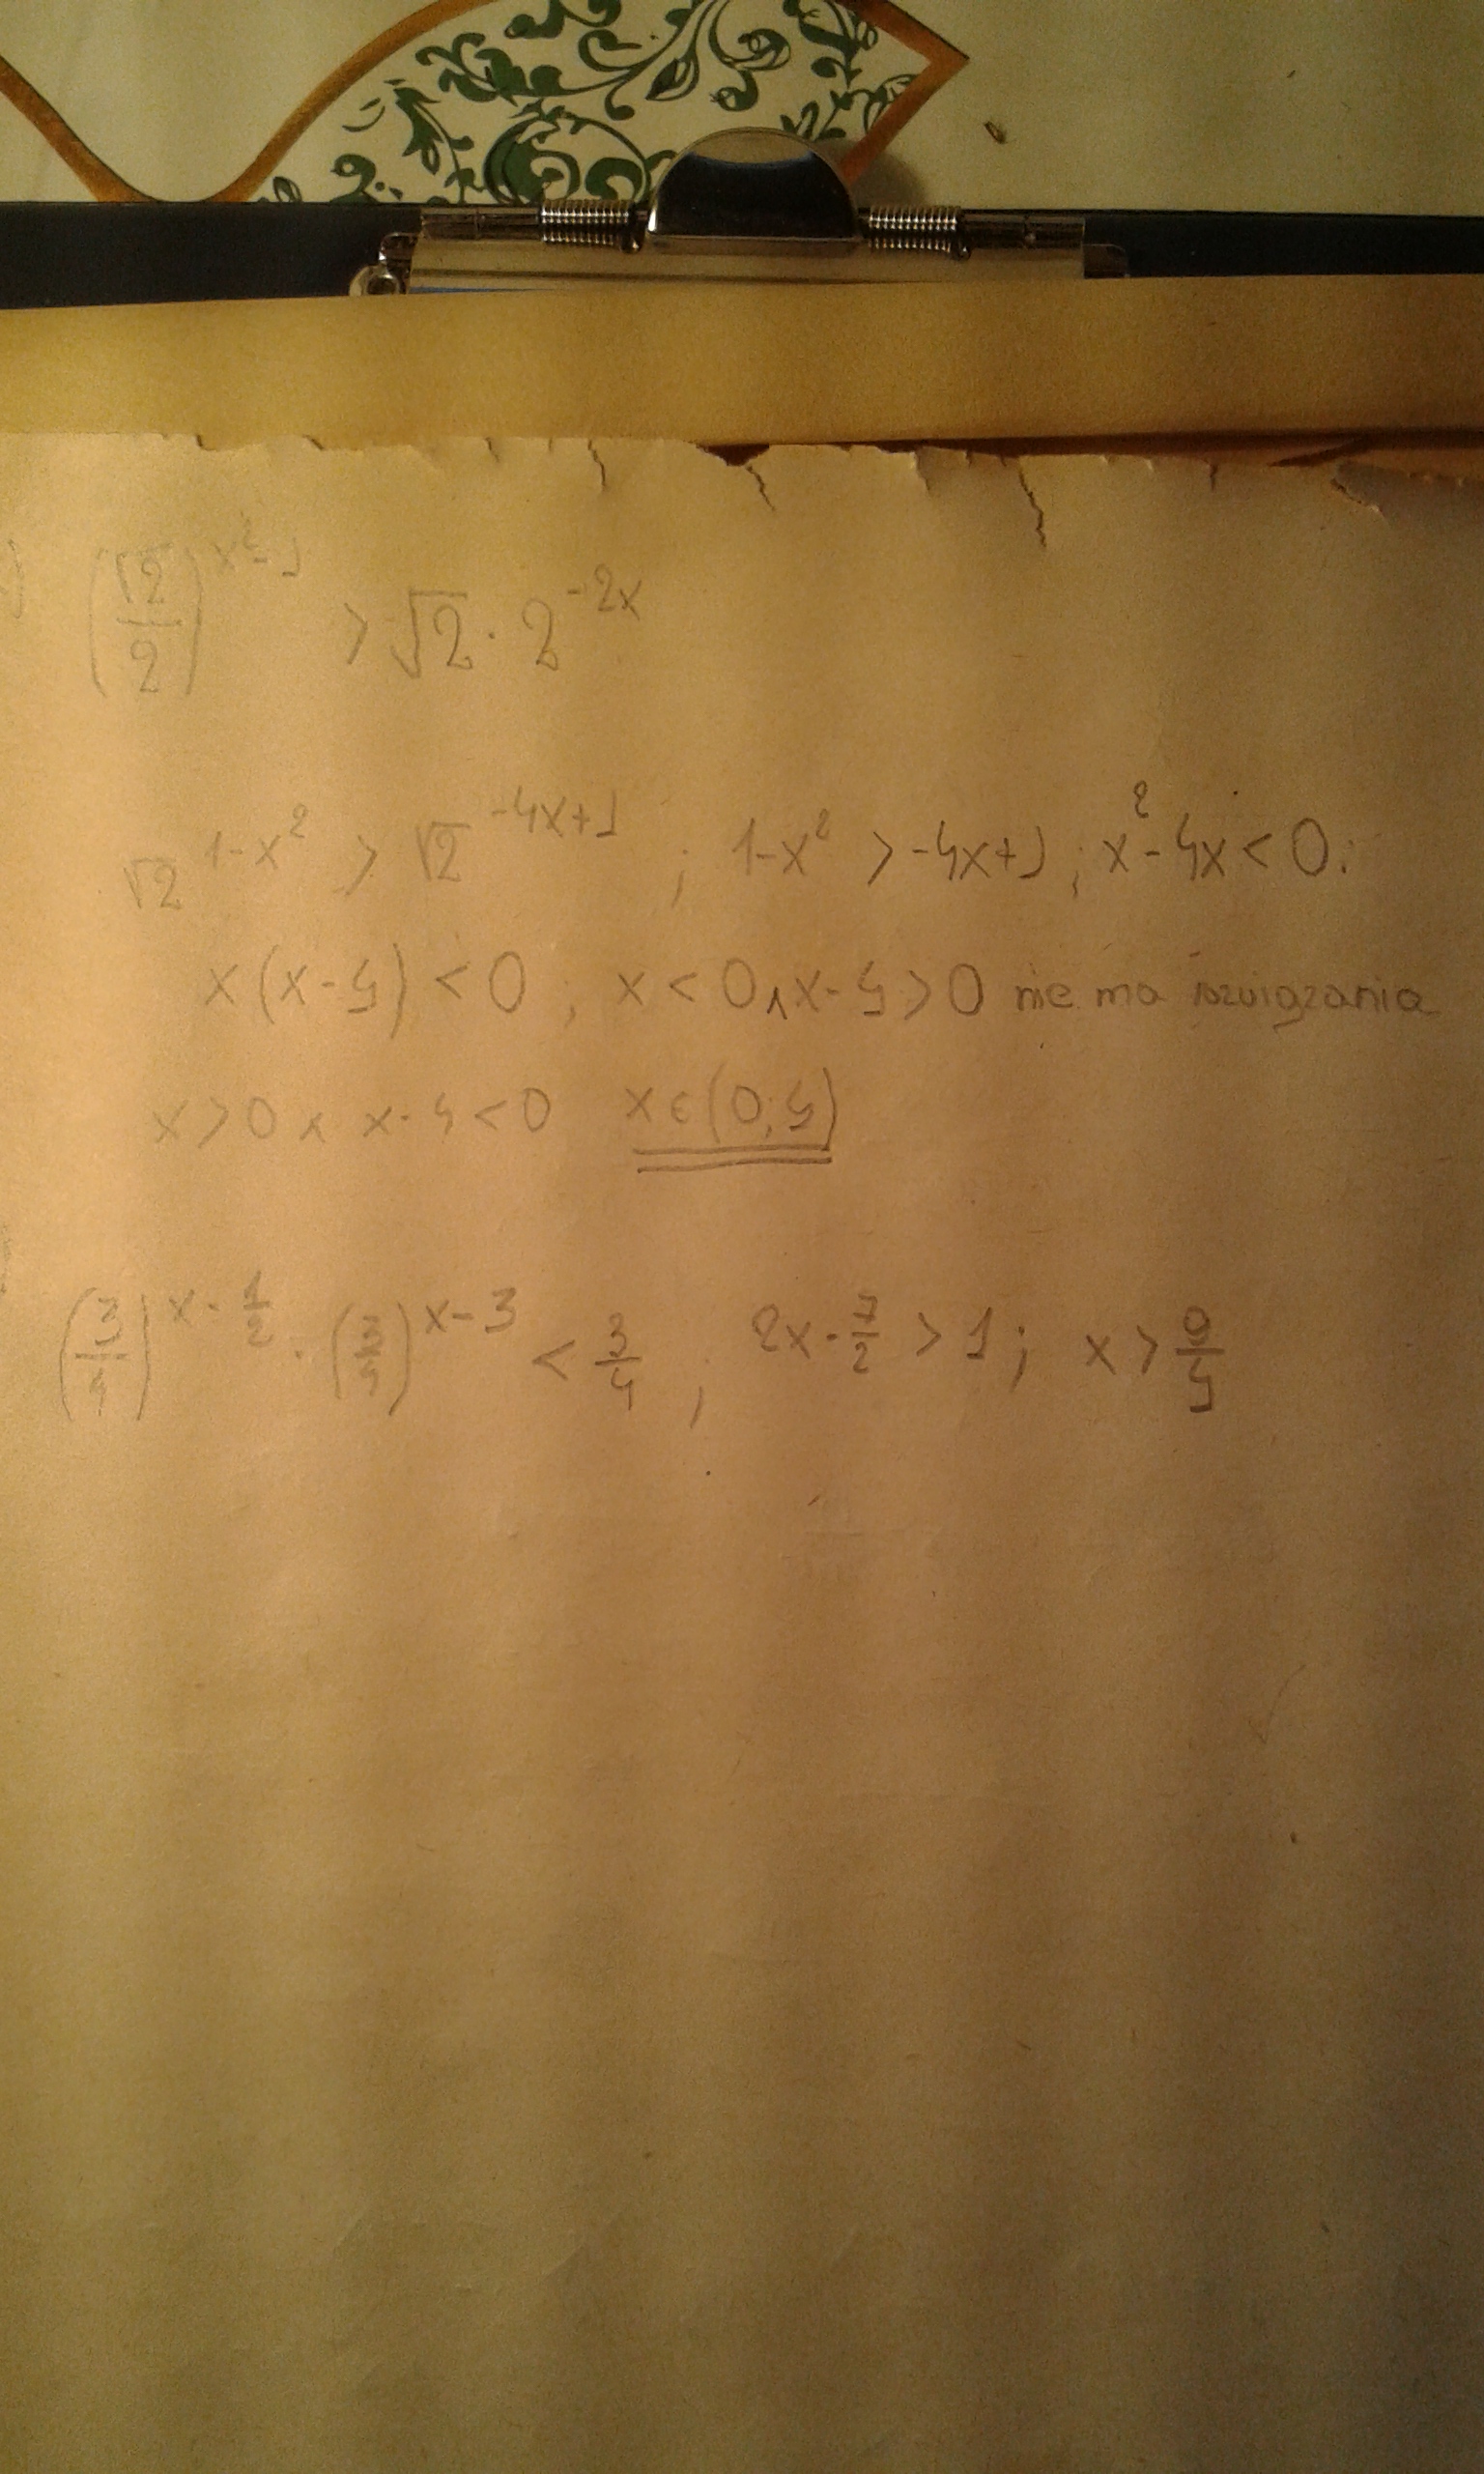 (√2/2)^(x²-1) > √2 · 2^(-2x)
√2^(1-x²) > √2^(-4x+1) ; 1-x² > -4x+1 ; x²-4x < 0 ;
x(x-4) < 0 ; x < 0 ∧ x-4 > 0 nie ma rozwiązania
x > 0 ∧ x-4 < 0 x ∈ (0; 4)
(3/4)^(x-1/2) · (3/4)^(x-3) < 3/4 ; 2x - 7/2 > 1 ; x > 9/4